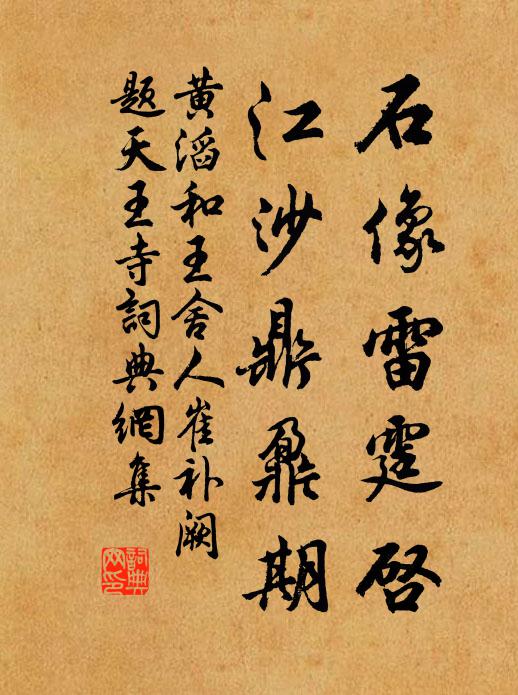 石像雷霆啓
江沙鼎鼐期
黄滔和王舍人崔补阙
题天王寺詞典網集
詞典
网印